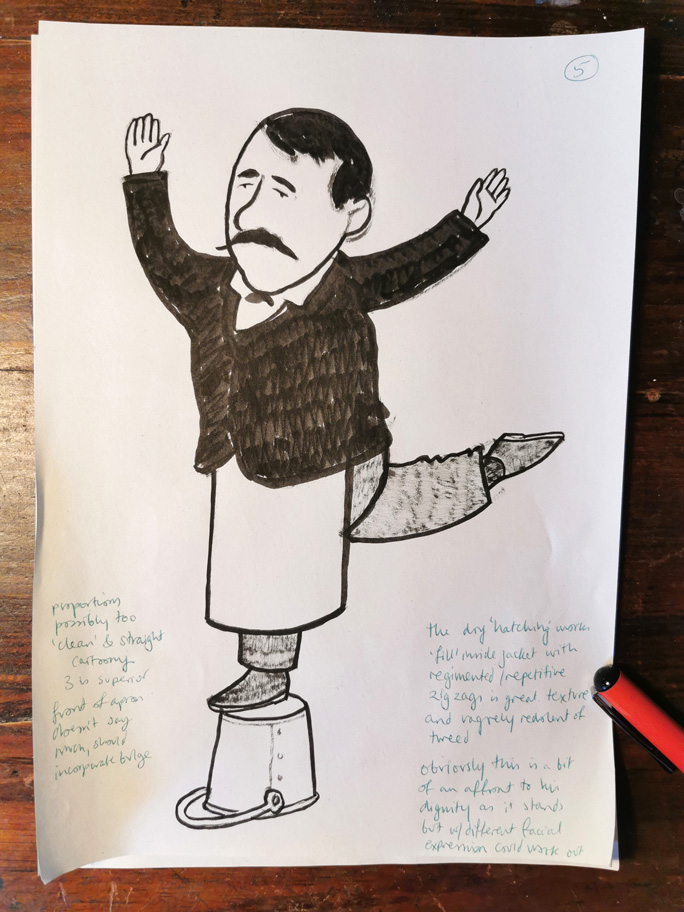 5
proportions
possibly too
'clean' & straight
cartoony
3 is superior
front of apron
doesn't say
much, should
incorporate bulge
the dry 'hatching' works
'fill' inside jacket with
regimented/repetitive
zigzags is great texture
and vaguely redolent of
tweed
Obviously this is a bit
of an affront to his
dignity as it stands
but w/different facial
expression could work out